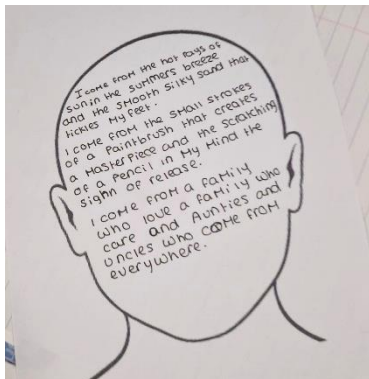 I come from the hot rays of
sun in the summers breeze
and the smooth silky sand that
tickles my feet.
I come from the small strokes
of a paintbrush that creates
a masterpiece and the scratching
of a pencil in my mind the
sighn of release.
I come from a family
who love a family who
care and Aunties and
uncles who come from
everywhere.